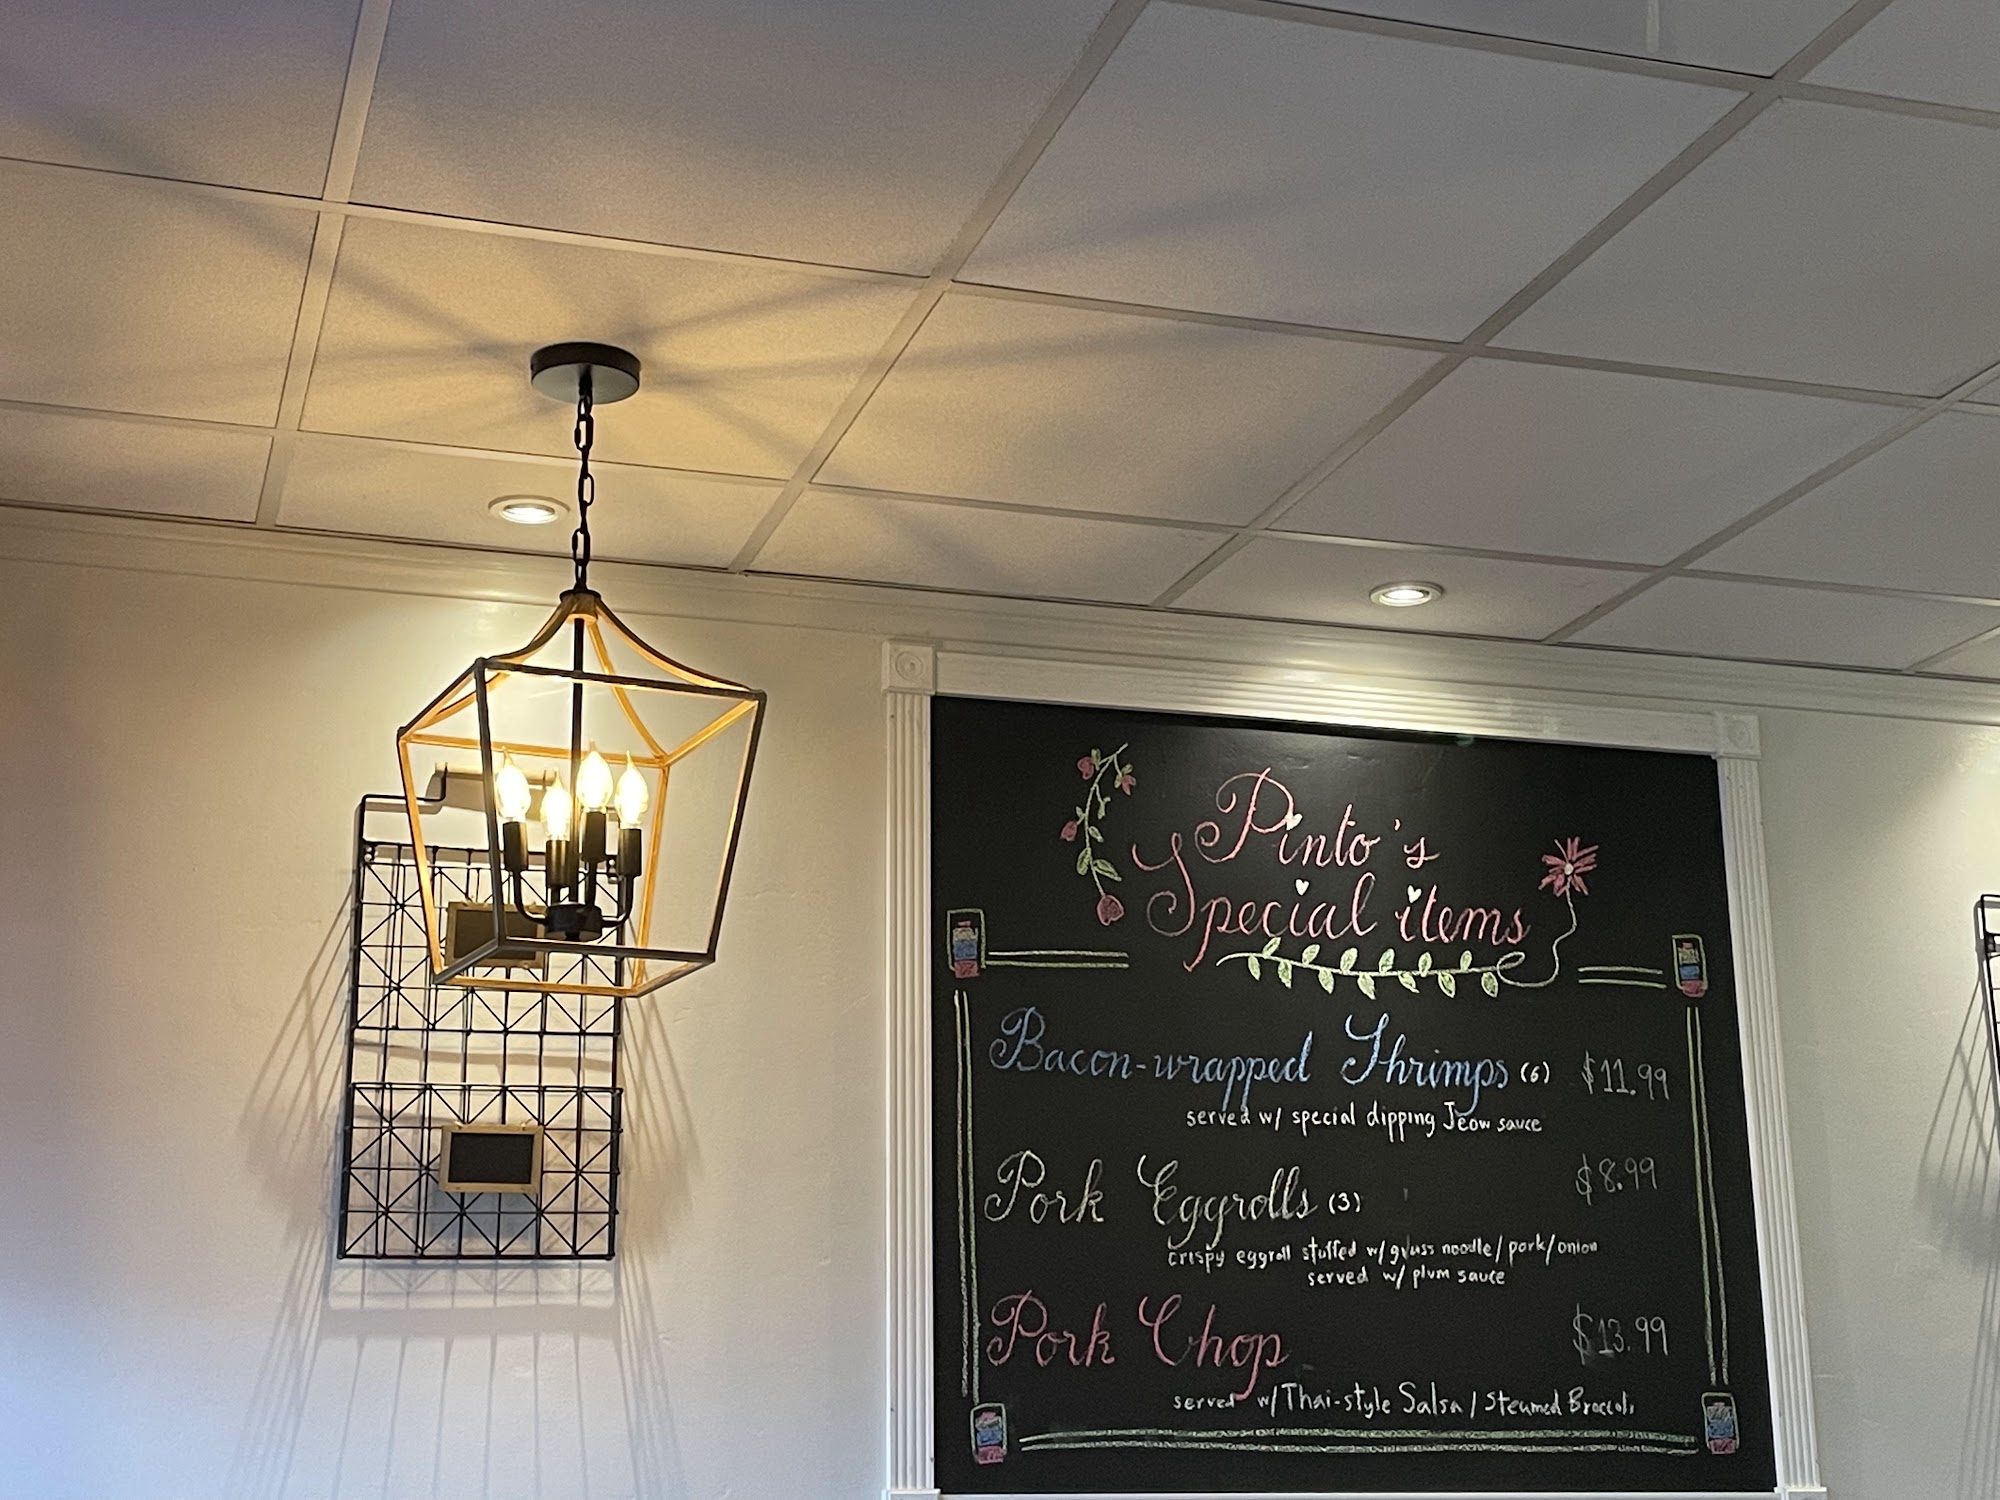 Pinto's
Special items
Bacon-wrapped Shrimps (6) $11.99
served w/ special dipping Jeow sauce
Pork Eggrolls (3) $8.99
crispy eggroll stuffed w/ glass noodle/pork/onion
served w/ plum sauce
Pork Chop $13.99
served w/ Thai-style Salsa / Steamed Broccoli